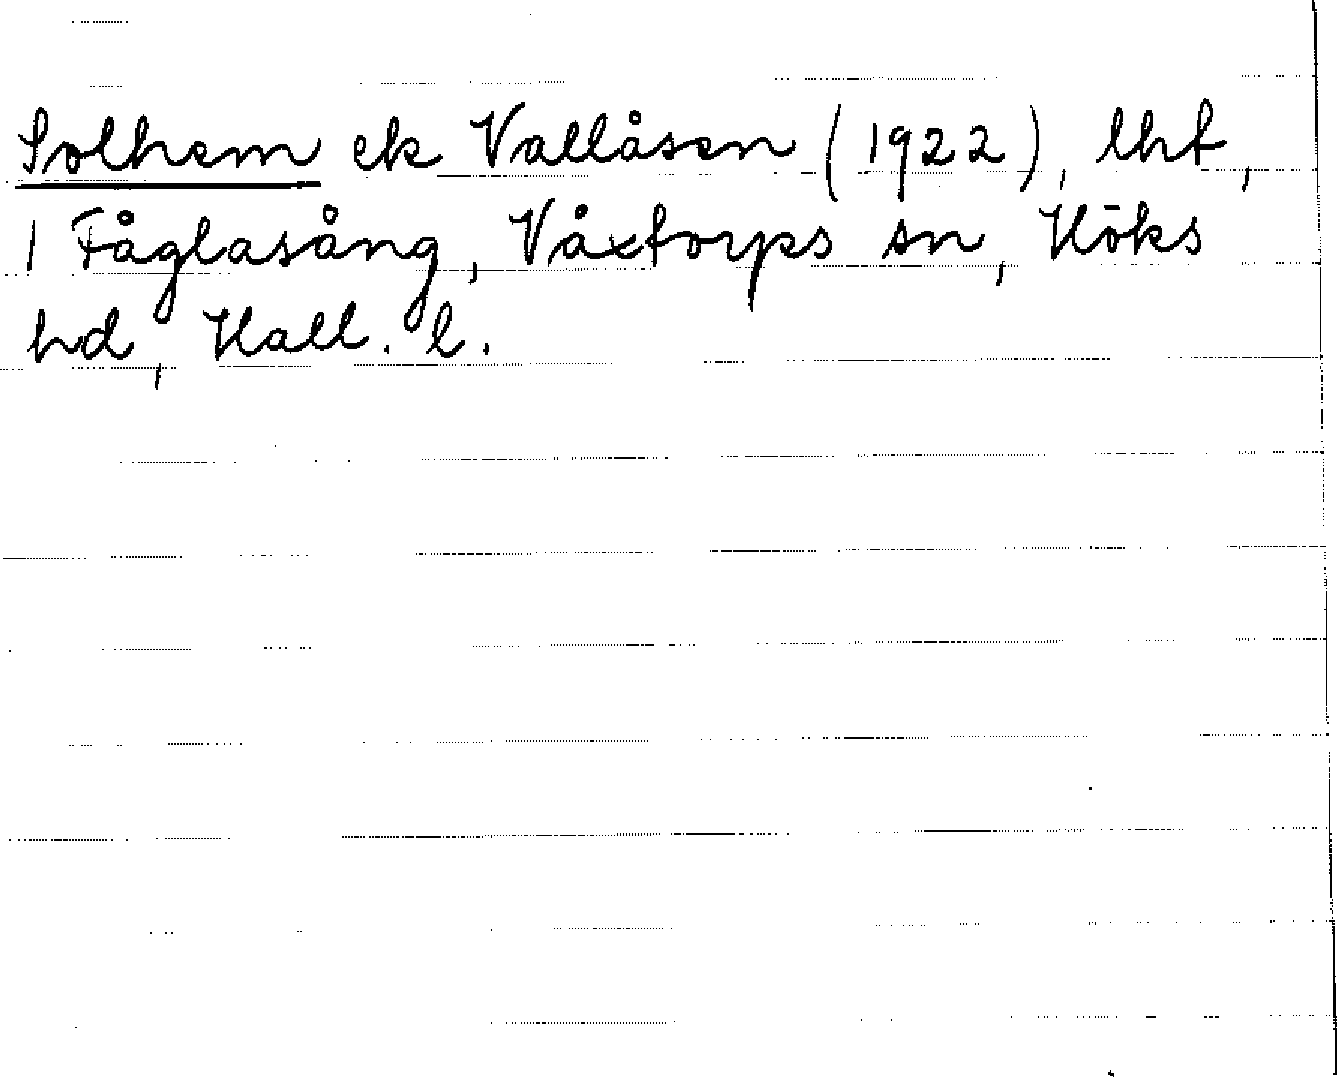 Solhem ek Vallåsen (1922), lht,
1 Fåglasång, Våxtorps sn, Höks
hd, Hall. l.